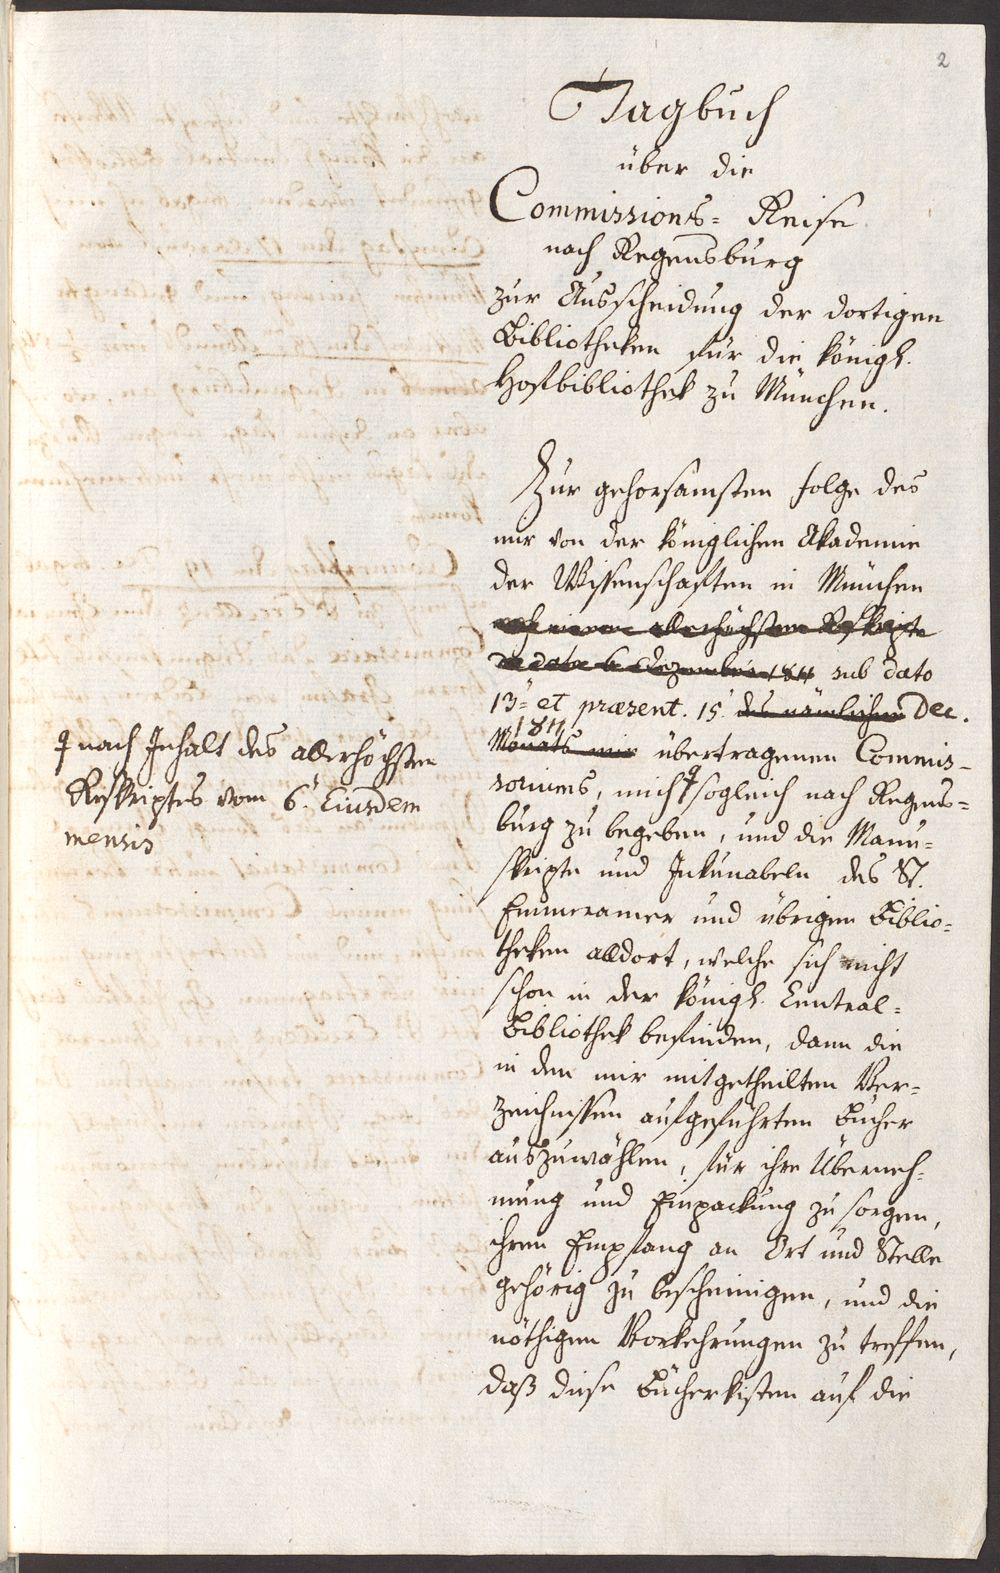 2
Tagbuch
über die
Commissions= Reise
nach Regensburg
zur Ausscheidung der dortigen
Bibliotheken für die königl.
Hofbibliothek zu München.
Zur gehorsamsten Folge des
mir von der königlichen Akademie
der Wissenschaften in München
nach einem allerhöchsten Reskripte
de dato 6 Dezember 1811 sub dato
13. et praesent. 15. des nämlichen Dec.
1811
Monats mir übertragenen Commis-
soriums, mich sogleich nach Regens=
burg zu begeben, und die Manu=
skripte und Inkunabeln des St.
Emmeramer und übrigen Biblio=
theken alldort, welche sich nicht
schon in der königl. Central=
Bibliothek befinden, dann die
in den mir mitgetheilten Ver=
zeichnissen aufgeführten Bücher
auszuwählen, für ihre Überneh=
mung und Einpackung zu sorgen,
ihren Empfang an Ort und Stelle
gehörig zu bescheinigen, und die
nöthigen Vorkehrungen zu treffen,
daß diese Bücherkisten auf die
nach Inhalt des allerhöchsten
Reskriptes vom 6. Eiusdem
mensis